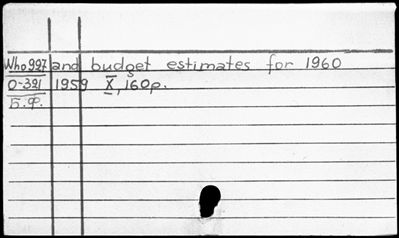 Who 997 and budget estimates for 1960
0-391 1959 X, 160p.
Б.Ф.